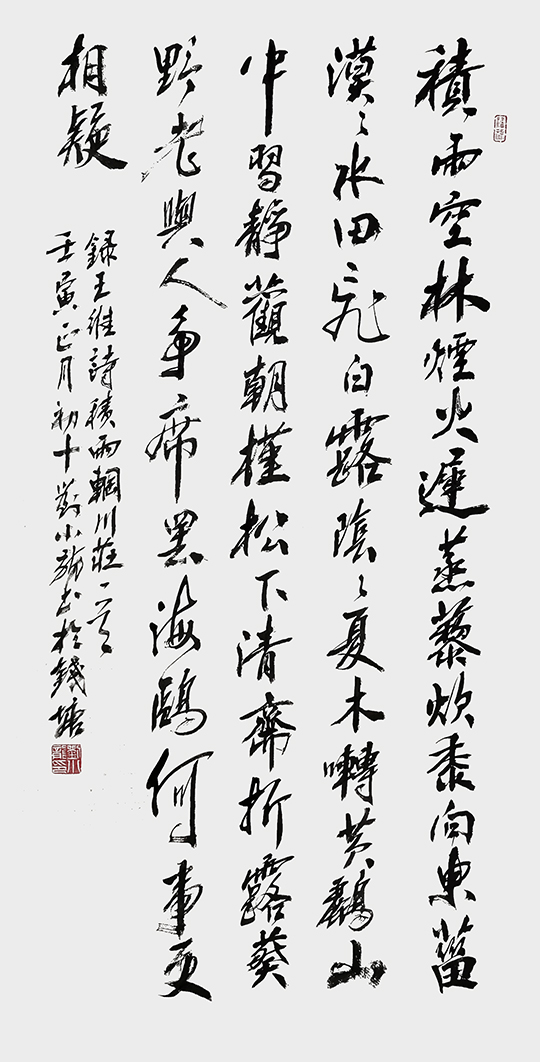 積雨空林煙火遲蒸藜炊黍向東菑
漠々水田飛白露陰々夏木囀黃鸝山
中習靜觀朝槿松下清齋折露葵
野老與人爭席罷海鷗何事更
相疑
録王維詩積雨輞川莊一首
壬寅正月初十劉小書於錢塘